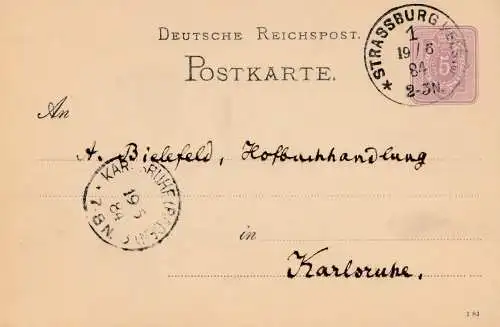 DEUTSCHE REICHSPOST.
POSTKARTE.
STRASSBURG
1
19/6
84
2-3N.
5
An
A. Bielefeld, Hofbuchhandlung
KARLSRUHE
19
84
7-8N
in
Karlsruhe.